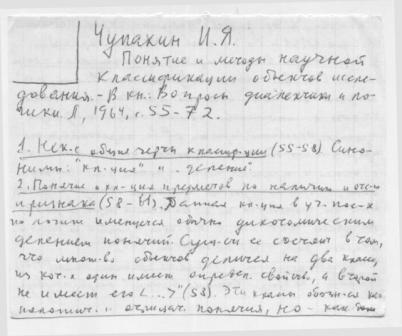 Чупакин И.Я.
Понятие и методы научной
классификации объектов иссле-
дования. - В кн: Вопросы диалектики и ло-
гики. Л, 1964, с. 55-72.
1. Нек-е общие черты классиф-ции (55-58) Сино-
нимы: "кл-ция" и "деление"
2. Понятие о кл-ции предметов по наличию и отс-ю
признака (58-61). Данная кл-ция в уч. пос-х
по логике именуется обычно дихотомическим
делением понятий. Сущ-сть ее состоит в том,
что множ-во объектов делится на два класса,
из кот-х один имеет определ. свойство, а второй
не имеет его <...>" (58). Эти классы обознач-ся как
положит. и отрицат. понятия, но - как